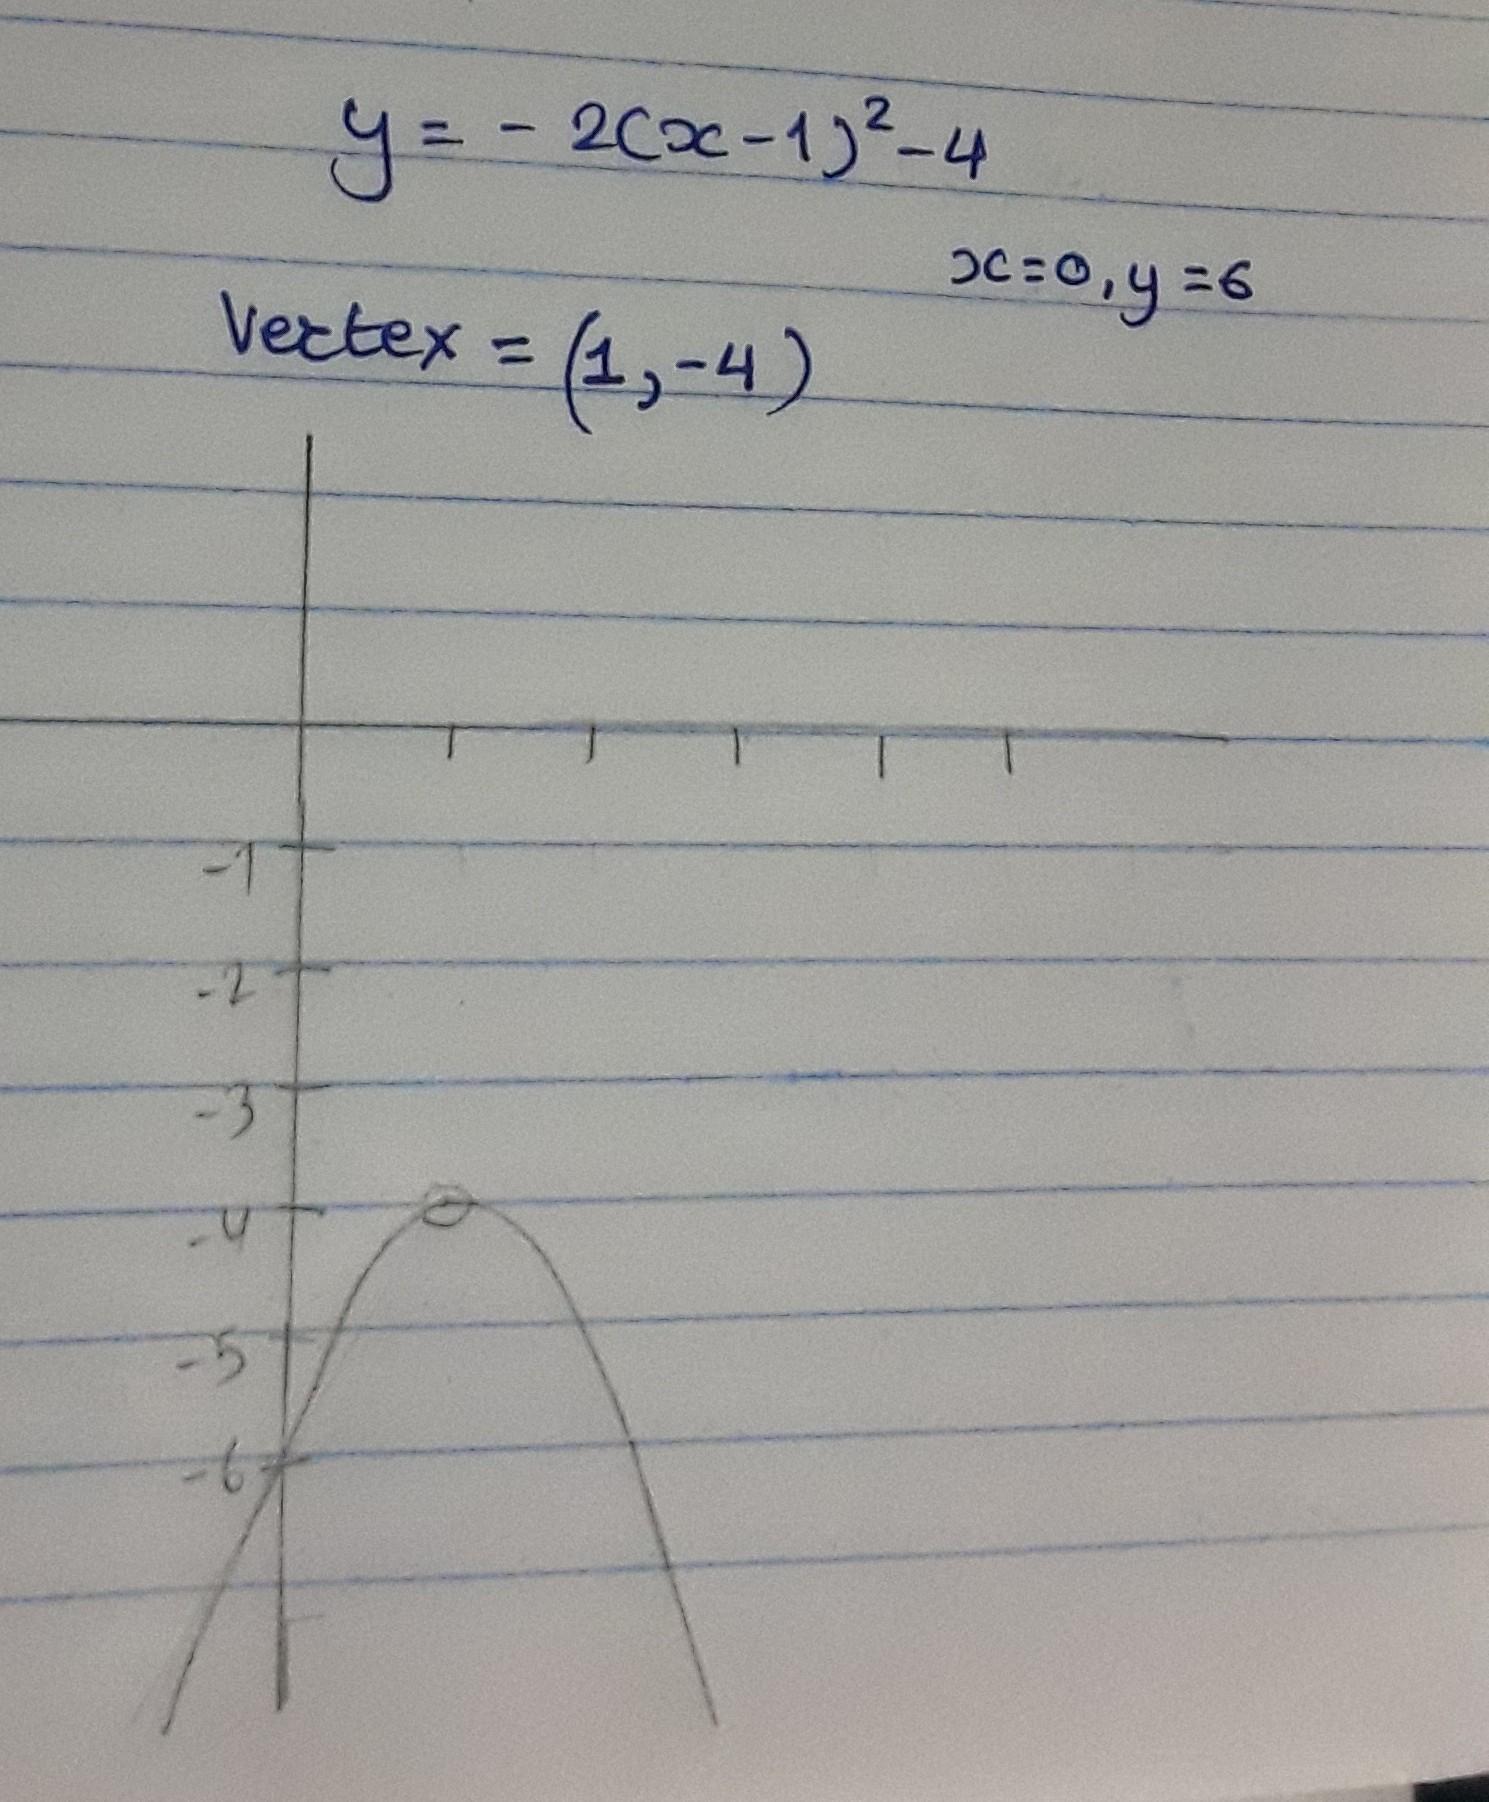 y = - 2(x-1)²-4
x=0, y=6
Vertex = (1,-4)
-1
-2
-3
-4
-5
-6